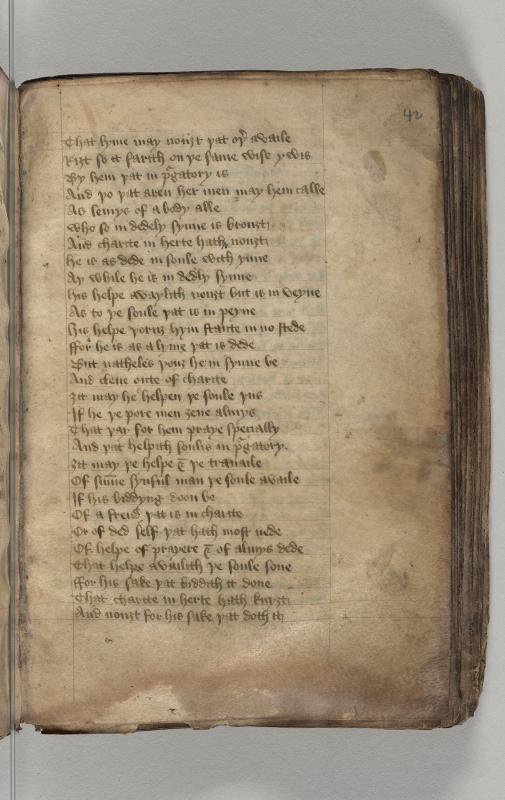 42
That lyme may nouȝt þat oþr availe
Riȝt so it farith on þe same wise ywis
By hem þat in p̄gatory is
And þo þat aren her men may hem calle
As lemys of a body alle
Who so in dedely synne is brouȝt
And charite in herte hath nouȝt
he is as dede in soule with ynne
Ay while he is in dedly synne
his helpe avaylith nouȝt but is in veyne
As to þe soule þat is in peyne
his helpe þoruȝ hym stante in no stede
ffor he is as a lyme þat is dede
But natheles þouȝ he in synne be
And clene oute of charite
ȝit may he helpen þe soule þus
If he þe pore men ȝeue almys
That þay for hem praye specially
And þat helpith soulis in p̄gatory.
ȝit may þe helpe & þe travaile
Of sūme synful man þe soule availe
If his biddyng doon be
Of a frend þat is in charite
Or of ded self þat hath most nede
Of helpe of prayere & of almys dede
That helpe availith þe soule sone
ffor his sake þat biddith it done
That charite in herte hath knyȝt
And nouȝt for his sake þat doth it